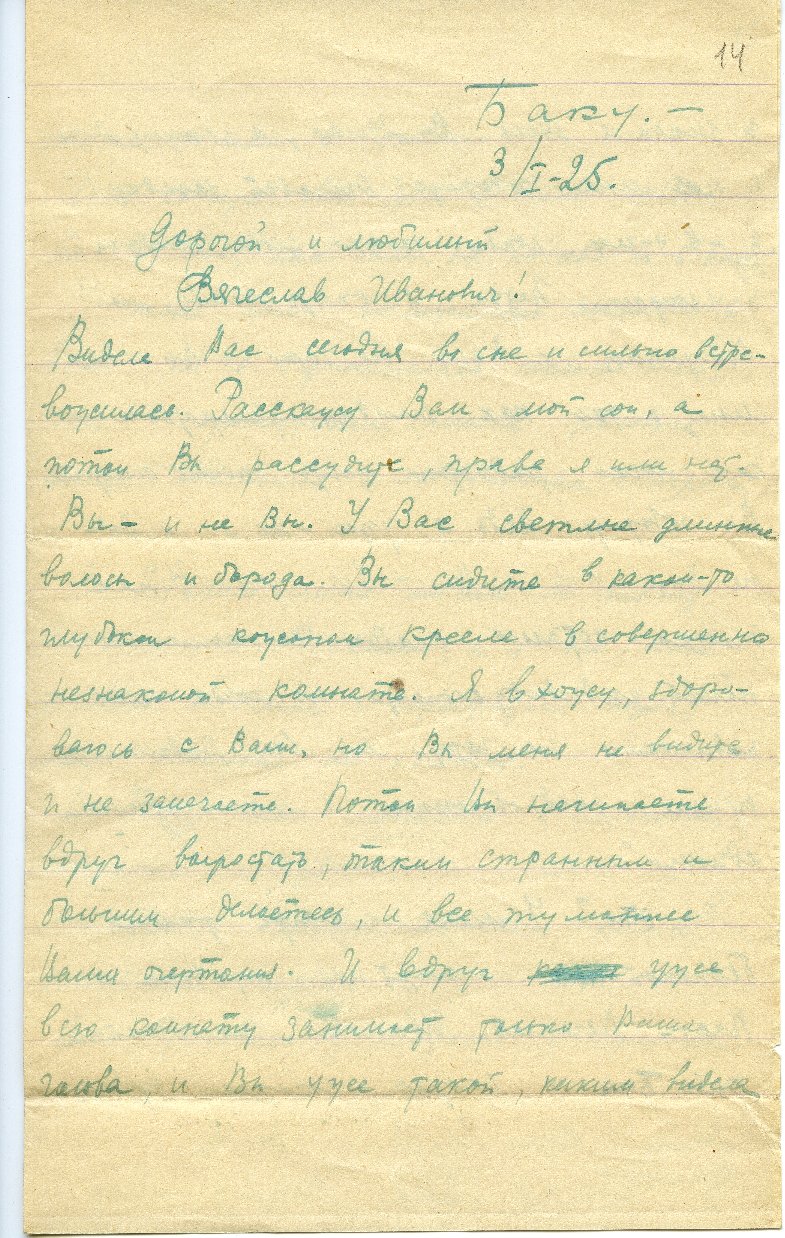 14
Баку. —
3/I-25.
Дорогой и любимый
Вячеслав Иванович!
Видела Вас сегодня во сне и сильно встре-
вожилась. Расскажу Вам мой сон, а
потом Вы рассудите, права я или нет.
Вы – и не Вы. У Вас светлые длинные
волосы и борода. Вы сидите в каком-то
глубоком кожаном кресле в совершенно
незнакомой комнате. Я вхожу, здоро-
ваюсь с Вами, но Вы меня не видите
и не замечаете. Потом Вы начинаете
вдруг вырастать, таким странным и
большим делаетесь, и все туманнее
Ваши очертания. И вдруг уже
всю комнату занимает только Ваша
голова, и Вы уже такой, каким видела